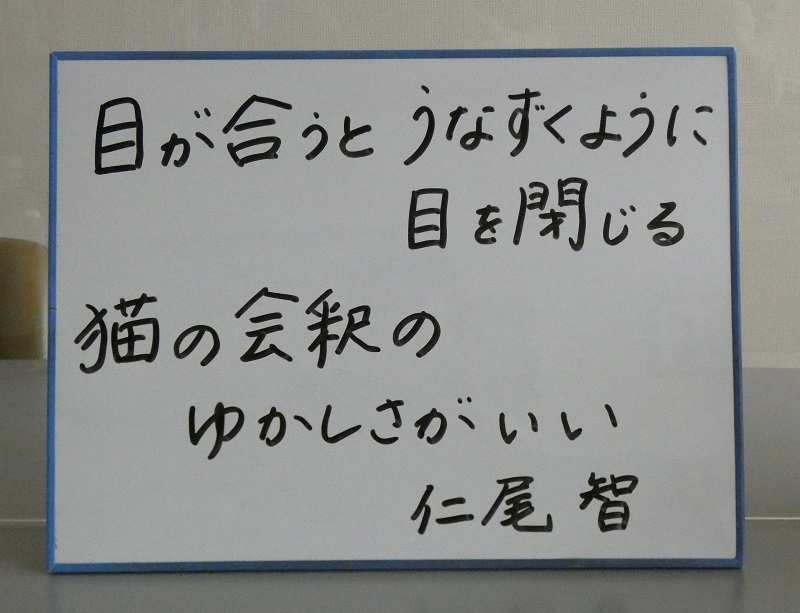 目が合うと うなずくように
目を閉じる
猫の会釈の
ゆかしさがいい
仁尾 智